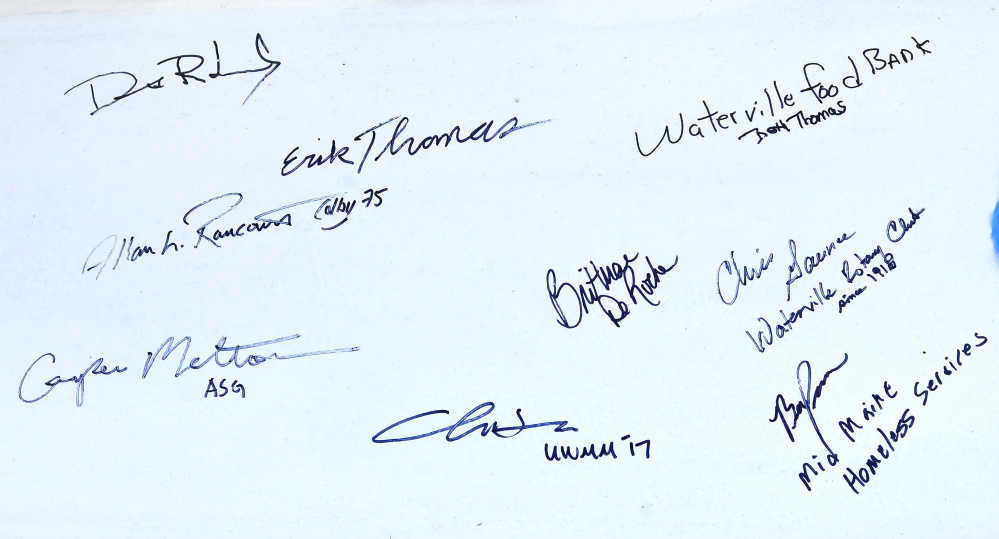 Erik Thomas
Waterville food BANK
Thomas
Allan L. Rancourt Colby 75
Brittnae
De Roche
Chris
Waterville Rotary Club
since 1918
Casper Melton
ASG
UWMM '17
Mid MAINE
HOMELESS Services